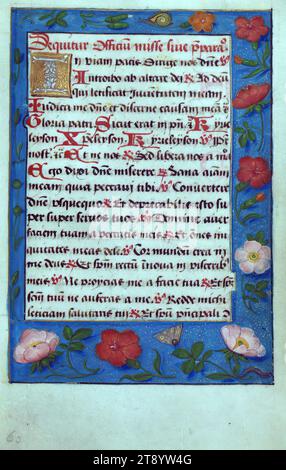 Sequitur Officium misse sive p̄para
In viam pacis Dirige nos dn̄e ℣
Introibo ad altare dei ℟ Ad deū
qui letificat iuventutem meam
Iudica me dn̄e et discerne causam meā
Gloria patri Sicut erat in pn̄ Ky
rieleyson Xpeleyson Kyrieleyson Pr̄
nost ℣ Et ne nos ℟ Sed libera nos a ma
Ego dixi dn̄e miserere ℟ Sana aīam
meam quia peccavi tibi ℣ Convertere
dn̄e usquequo ℟ et deprecabilis esto su
per super servos tuos ℣ Domine averte
faciem tuam a peccatis meis ℟ Et om̄es ini
quitates meas dele ℣ Cor mundum crea in
me deus ℟ Et sp̄m rectū īnova in visceribꝰ
meis ℣ Ne proicias me a facie tua ℟ Et sp̄m
sc̄tm tuū ne auferas a me ℣ Redde michi
leticiam salutaris tui ℟ Et sp̄u principali
alamy - 2T8YW4G